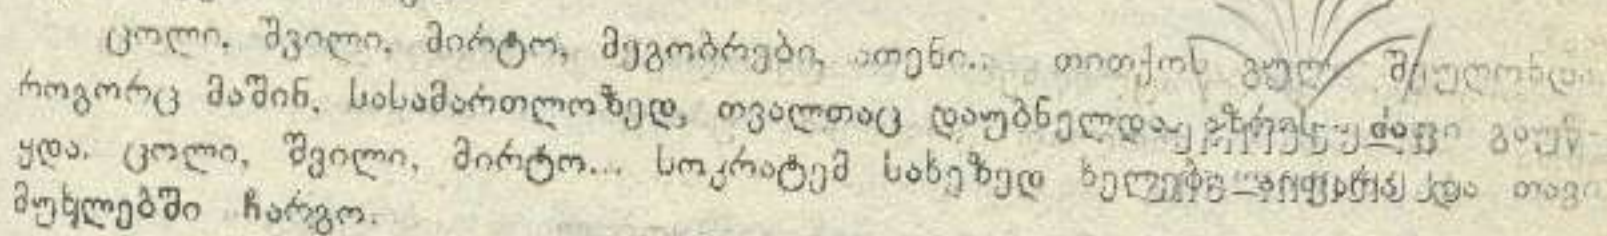 ცოლი, შვილი, მირტო, მეგობრები, ათენი... თითქოს გული შეუღონდა
როგორც მაშინ, სასამართლოზედ, თვალთაც დაუბნელდა, აზრის ძაფი გაუწ-
ყდა. ცოლი, შვილი, მირტო... სოკრატემ სახეზედ ხელები აიფარა და თავი
მუხლებში ჩარგო.